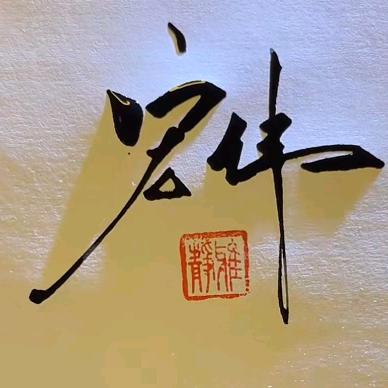 宏伟
雅静